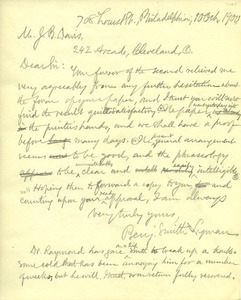 708 Locust St. Philadelphia, 10 Oct. 1900
Mr. J. B. Davis,
242 Arcade, Cleveland, O.
Dear Sir: Your favor of the second relieved me
very agreeably from any further hesitation about
the form of your paper, and I trust you will
find the result quite satisfactory. The paper is
in the printer's hands, and we shall have a proof
before many days. The general arrangement
seems to be good, and the phraseology
to be clear and intelligible.
Hoping then to forward a copy to you and
counting upon your approval, I am always
Very truly yours,
Benj. Smith Lyman
Dr. Raymond has gone to break up a
some cold that has been annoying him for a number
of weeks; but he will, I trust, soon return fully recovered.